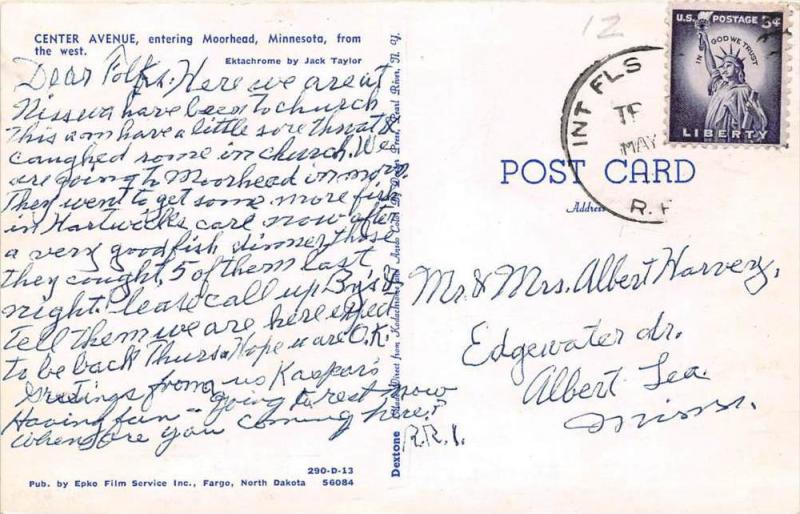 CENTER AVENUE, entering Moorhead, Minnesota, from
the west.
Ektachrome by Jack Taylor
Dear Folks: Here we are at
Nisswa have been to church
This a m have a little sore throat &
caughed some in church. We
are going to Moorhead in morn.
They went to get some more fish
in Hartwicks care now after
a very good fish dinner, those
they cought, 5 of them last
night. Please call up By's &
tell them we are here expect
to be back Thurs. Hope u are O.K.
Greetings from us Kaspers
Having fun - going to rest now
when are you coming here?
R.R.1.
290-D-13
Pub. by Epko Film Service Inc., Fargo, North Dakota 56084
Dextone Made Direct from Kodachrome and Ansco Color by Dexter Press, Pearl River, N. Y.
12
INT FLS
MAY
R.P
U.S. POSTAGE 3¢
IN GOD WE TRUST
LIBERTY
POST CARD
Address
Mr. & Mrs. Albert Harvery,
Edgewater dr.
Albert Lea
Minn.